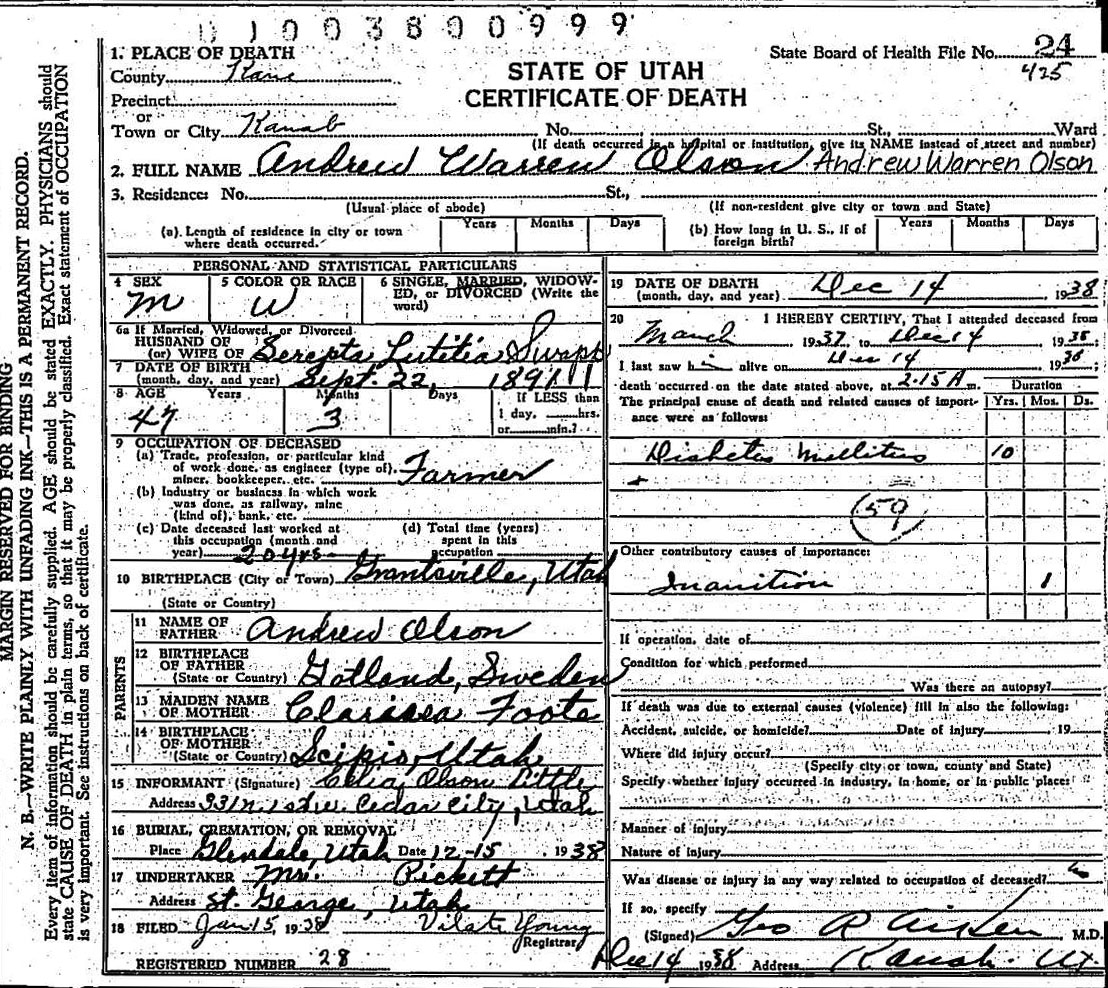 01003800999
1. PLACE OF DEATH
County Kane
State Board of Health File No. 24
425
STATE OF UTAH
CERTIFICATE OF DEATH
Precinct
or
Town or City Kanab No. St., Ward
(If death occurred in a hospital or institution, give its NAME instead of street and number)
2. FULL NAME Andrew Warren Olson Andrew Warren Olson
3. Residence: No. St.,
(Usual place of abode) (If non-resident give city or town and State)
(a). Length of residence in city or town where death occurred. Years Months Days
(b) How long in U. S., if of foreign birth? Years Months Days
MARGIN RESERVED FOR BINDING
N. B.—WRITE PLAINLY WITH UNFADING INK—THIS IS A PERMANENT RECORD.
Every item of information should be carefully supplied. AGE should be stated EXACTLY. PHYSICIANS should
state CAUSE OF DEATH in plain terms, so that it may be properly classified. Exact statement of OCCUPATION
is very important. See instructions on back of certificate.
PERSONAL AND STATISTICAL PARTICULARS
4 SEX M
5 COLOR OR RACE W
6 SINGLE, MARRIED, WIDOWED, or DIVORCED (Write the word)
6a If Married, Widowed, or Divorced
HUSBAND OF
(or) WIFE OF Serepta Lutitia Swapp
7 DATE OF BIRTH
(month, day, and year) Sept. 22, 1891
8 AGE Years Months Days If LESS than
1 day, hrs.
or min.?
47 3
9 OCCUPATION OF DECEASED
(a) Trade, profession, or particular kind
of work done, as engineer (type of),
miner, bookkeeper, etc. Farmer
(b) Industry or business in which work
was done, as railway, mine
(kind of), bank, etc.
(c) Date deceased last worked at
this occupation (month and
year) 20 yrs
(d) Total time (years)
spent in this
occupation
10 BIRTHPLACE (City or Town) Grantsville, Utah
(State or Country)
PARENTS
11 NAME OF
FATHER Andrew Olson
12 BIRTHPLACE
OF FATHER
(State or Country) Gotland, Sweden
13 MAIDEN NAME
OF MOTHER Clarissa Foote
14 BIRTHPLACE
OF MOTHER
(State or Country) Scipio, Utah
15 INFORMANT (Signature) Celia Olson Little
Address Cedar City, Utah
16 BURIAL, CREMATION, OR REMOVAL
Place Glendale, Utah Date 12-15 1938
17 UNDERTAKER Mr. Pickett
Address St. George, Utah
18 FILED Jan 15, 1938 Vilate Young
Registrar
REGISTERED NUMBER 28
19 DATE OF DEATH
(month, day, and year) Dec 14 1938
20 I HEREBY CERTIFY, That I attended deceased from
March 1937 to Dec 14 1938
I last saw him alive on Dec 14 1938
death occurred on the date stated above, at 2.15 A m.
The principal cause of death and related causes of importance were as follows:
Duration
Yrs. Mos. Ds.
Diabetes Mellitus 10
+
59
Other contributory causes of importance:
Inanition 1
If operation, date of
Condition for which performed
Was there an autopsy?
If death was due to external causes (violence) fill in also the following:
Accident, suicide, or homicide? Date of injury 19
Where did injury occur?
(Specify city or town, county and State)
Specify whether injury occurred in industry, in home, or in public place:
Manner of injury
Nature of injury
Was disease or injury in any way related to occupation of deceased? no
If so, specify
(Signed) Geo R Aiken M.D.
Dec 14 1938 Address Kanab. Ut.